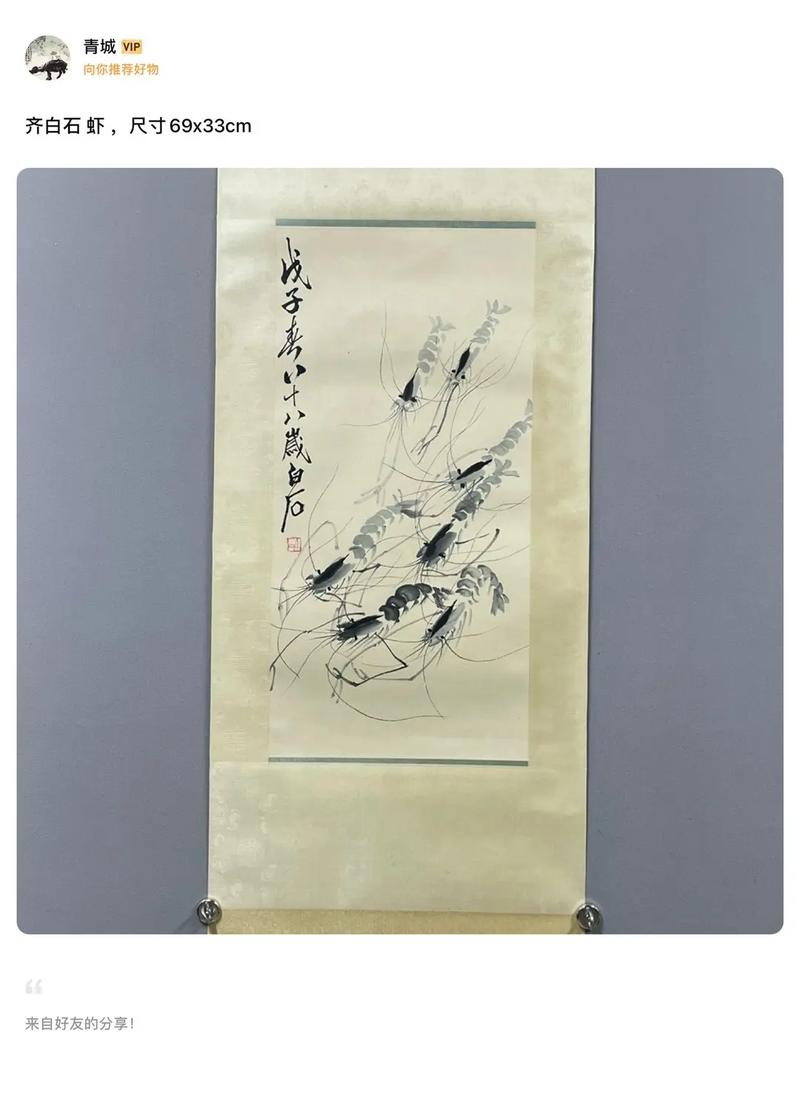 青城 VIP
向你推荐好物
齐白石 虾 ，尺寸69x33cm
戊子春八十八歲白石
来自好友的分享！